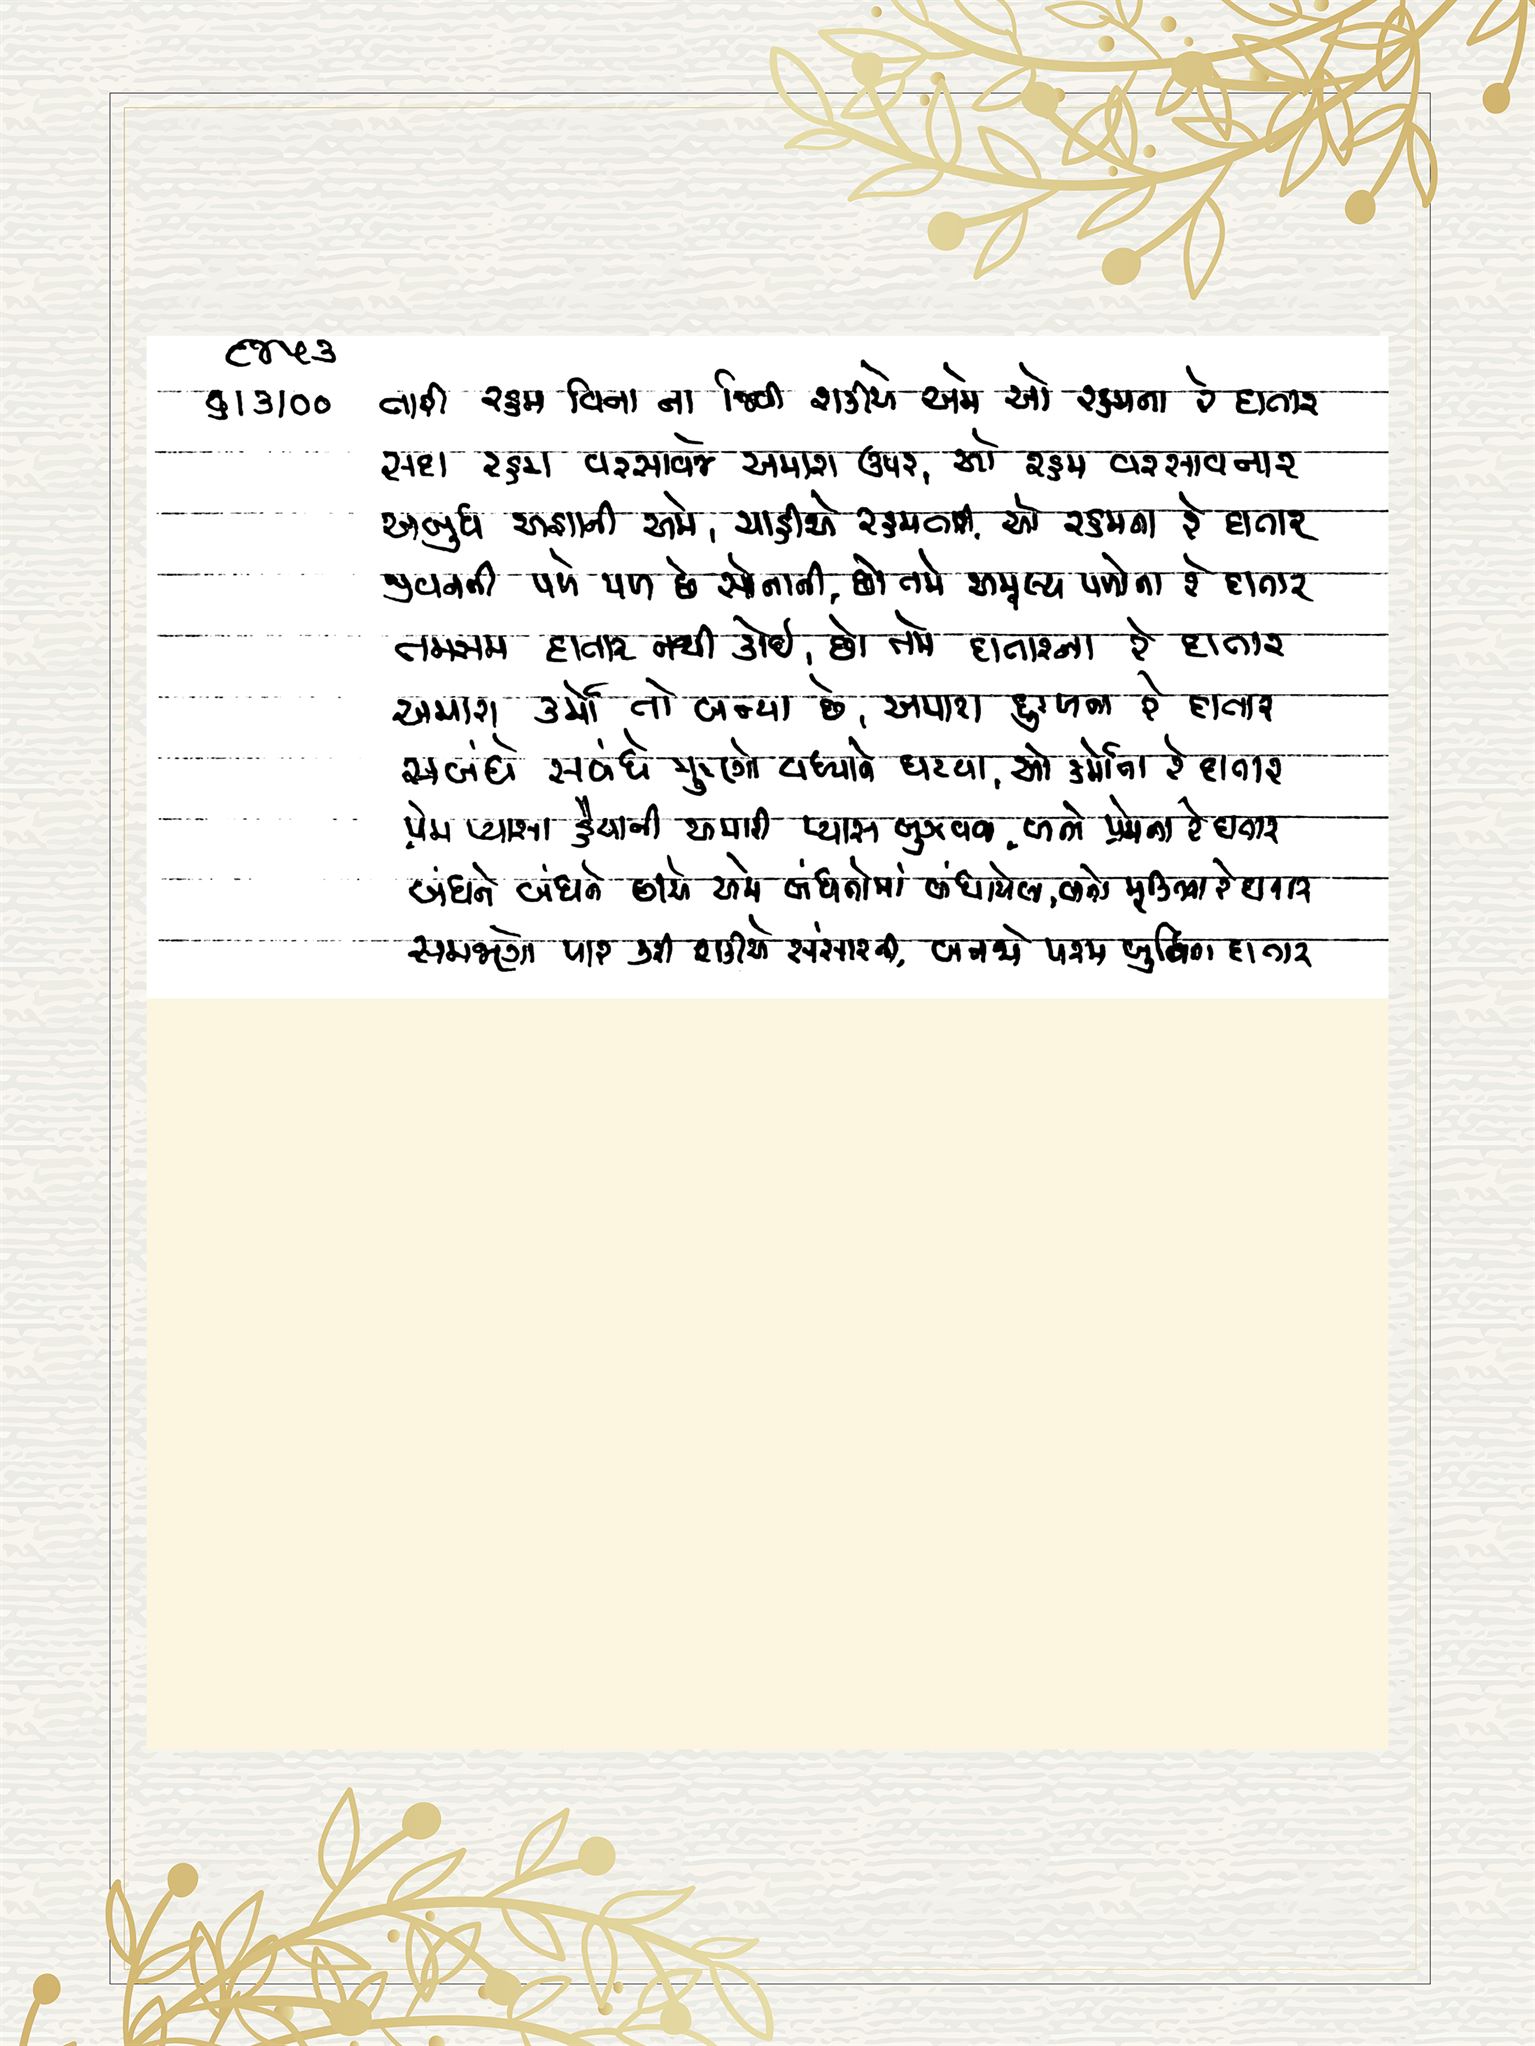 ૮૪૫૩
૬/૩/૦૦ તારી રહમ વિના ના જિવી શકીયે અમે ઓ રહમના રે દાતાર
સદા રહમ વરસાવજે અમારા ઉપર, ઓ રહમ વરસાવનાર
અબુધ અજ્ઞાની અમે, ચાહીએ રહમ તારી, ઓ રહમના રે દાતાર
જીવનની પળે પળ છે સોનાની, છો તમે અમૂલ્ય પળોના રે દાતાર
તમસમ દાતાર નથી કોઈ, છો તમે દાતારના રે દાતાર
અમારા કર્મો તો બન્યા છે, અમારા દુઃખના રે દાતાર
સબંધે સબંધે ગુણો વધ્યાને ઘટયા, ઓ કર્મોના રે દાતાર
પ્રેમ પ્યાસા હૈયાની અમારી પ્યાસ બુઝવવા, બનો પ્રેમના રે દાતાર
બંધને બંધને છીયે અમે બંધનોમાં બંધાયેલા, બનો મુક્તિના રે દાતાર
સમજણો પાર કરી શકીયે સંસારની, બનજો પરમ બુદ્ધિના દાતાર